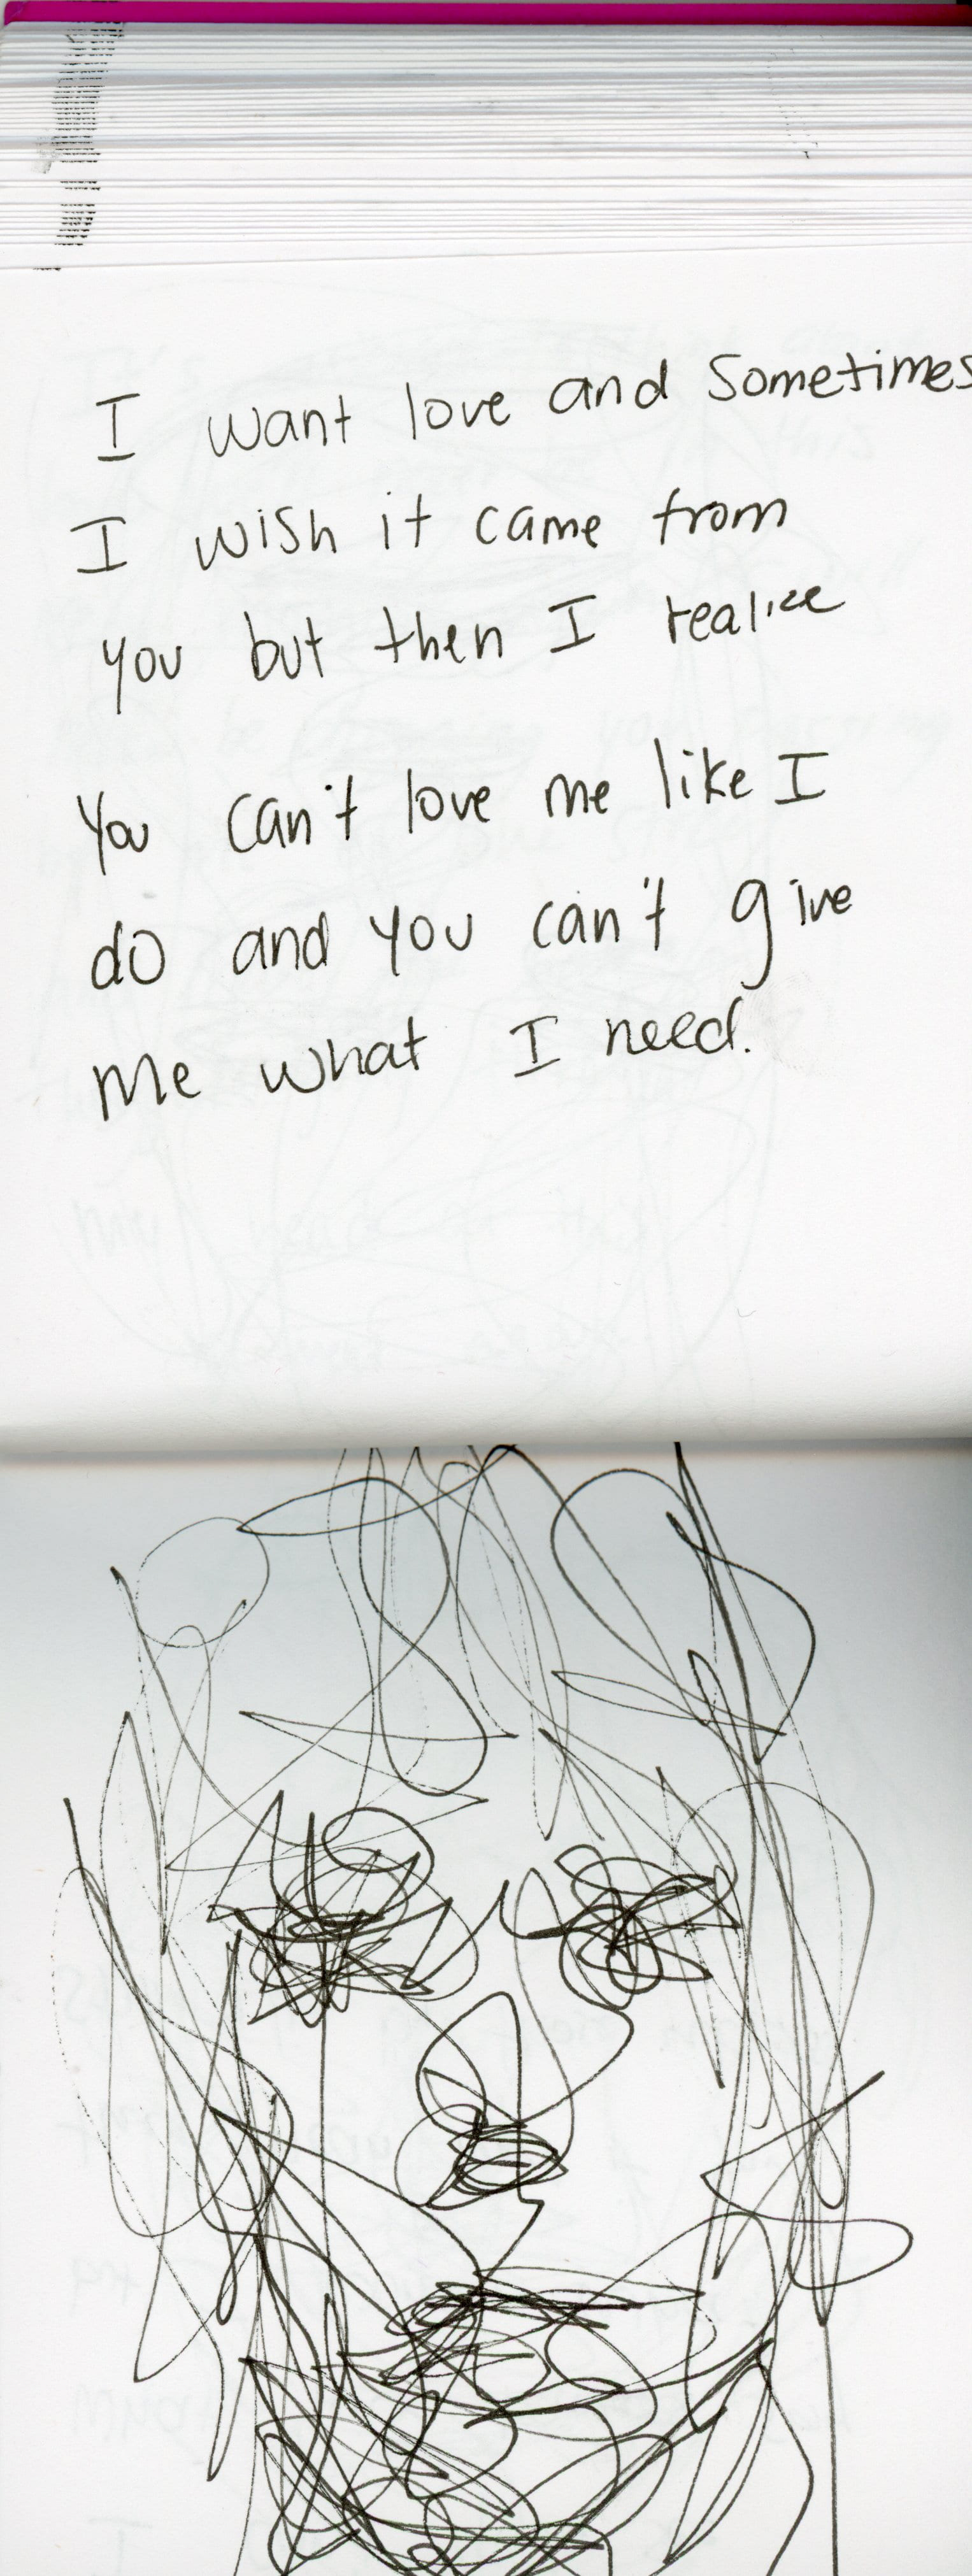 I want love and Sometimes
I wish it came from
you but then I realize
You can't love me like I
do and you can't give
me what I need.